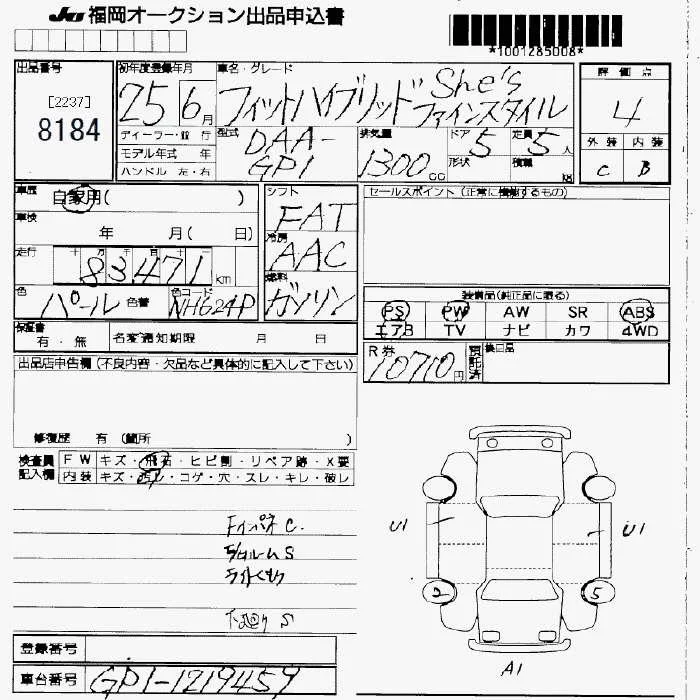 JU 福岡オークション出品申込書
*1001285008*
出品番号
[2237]
8184
初年度登録年月
25 6月
ディーラー・並 行
モデル年式 年
ハンドル 左・右
車名・グレード
フィットハイブリッド She's
ファインスタイル
型式
DAA-
GP1
排気量
1300cc
ドア 5
形状
定員 5人
積載 kg
評価点
4
外装 内装
C B
車歴
自家用( )
車検
年 月( 日)
走行
十 万 千 百 十 一
83471km
色
パール 色替
色コード
NH624P
シフト
FAT
冷房
AAC
燃料
ガソリン
セールスポイント (正常に機能するもの)
装備品(純正品に限る)
PS PW AW SR ABS
エアB TV ナビ カワ 4WD
保証書
有・無
名変通知期限 月 日
R券
10710円
預託済
後日品
出品店申告欄(不良内容・欠品など具体的に記入して下さい)
修復歴 有 (箇所 )
検査員
記入欄
FW キズ・飛石・ヒビ割・リペア跡・X要
内装 キズ・汚レ・コゲ・穴・スレ・キレ・破レ
S
U1
U1
2
5
A1
登録番号
車台番号
GP1-1219459